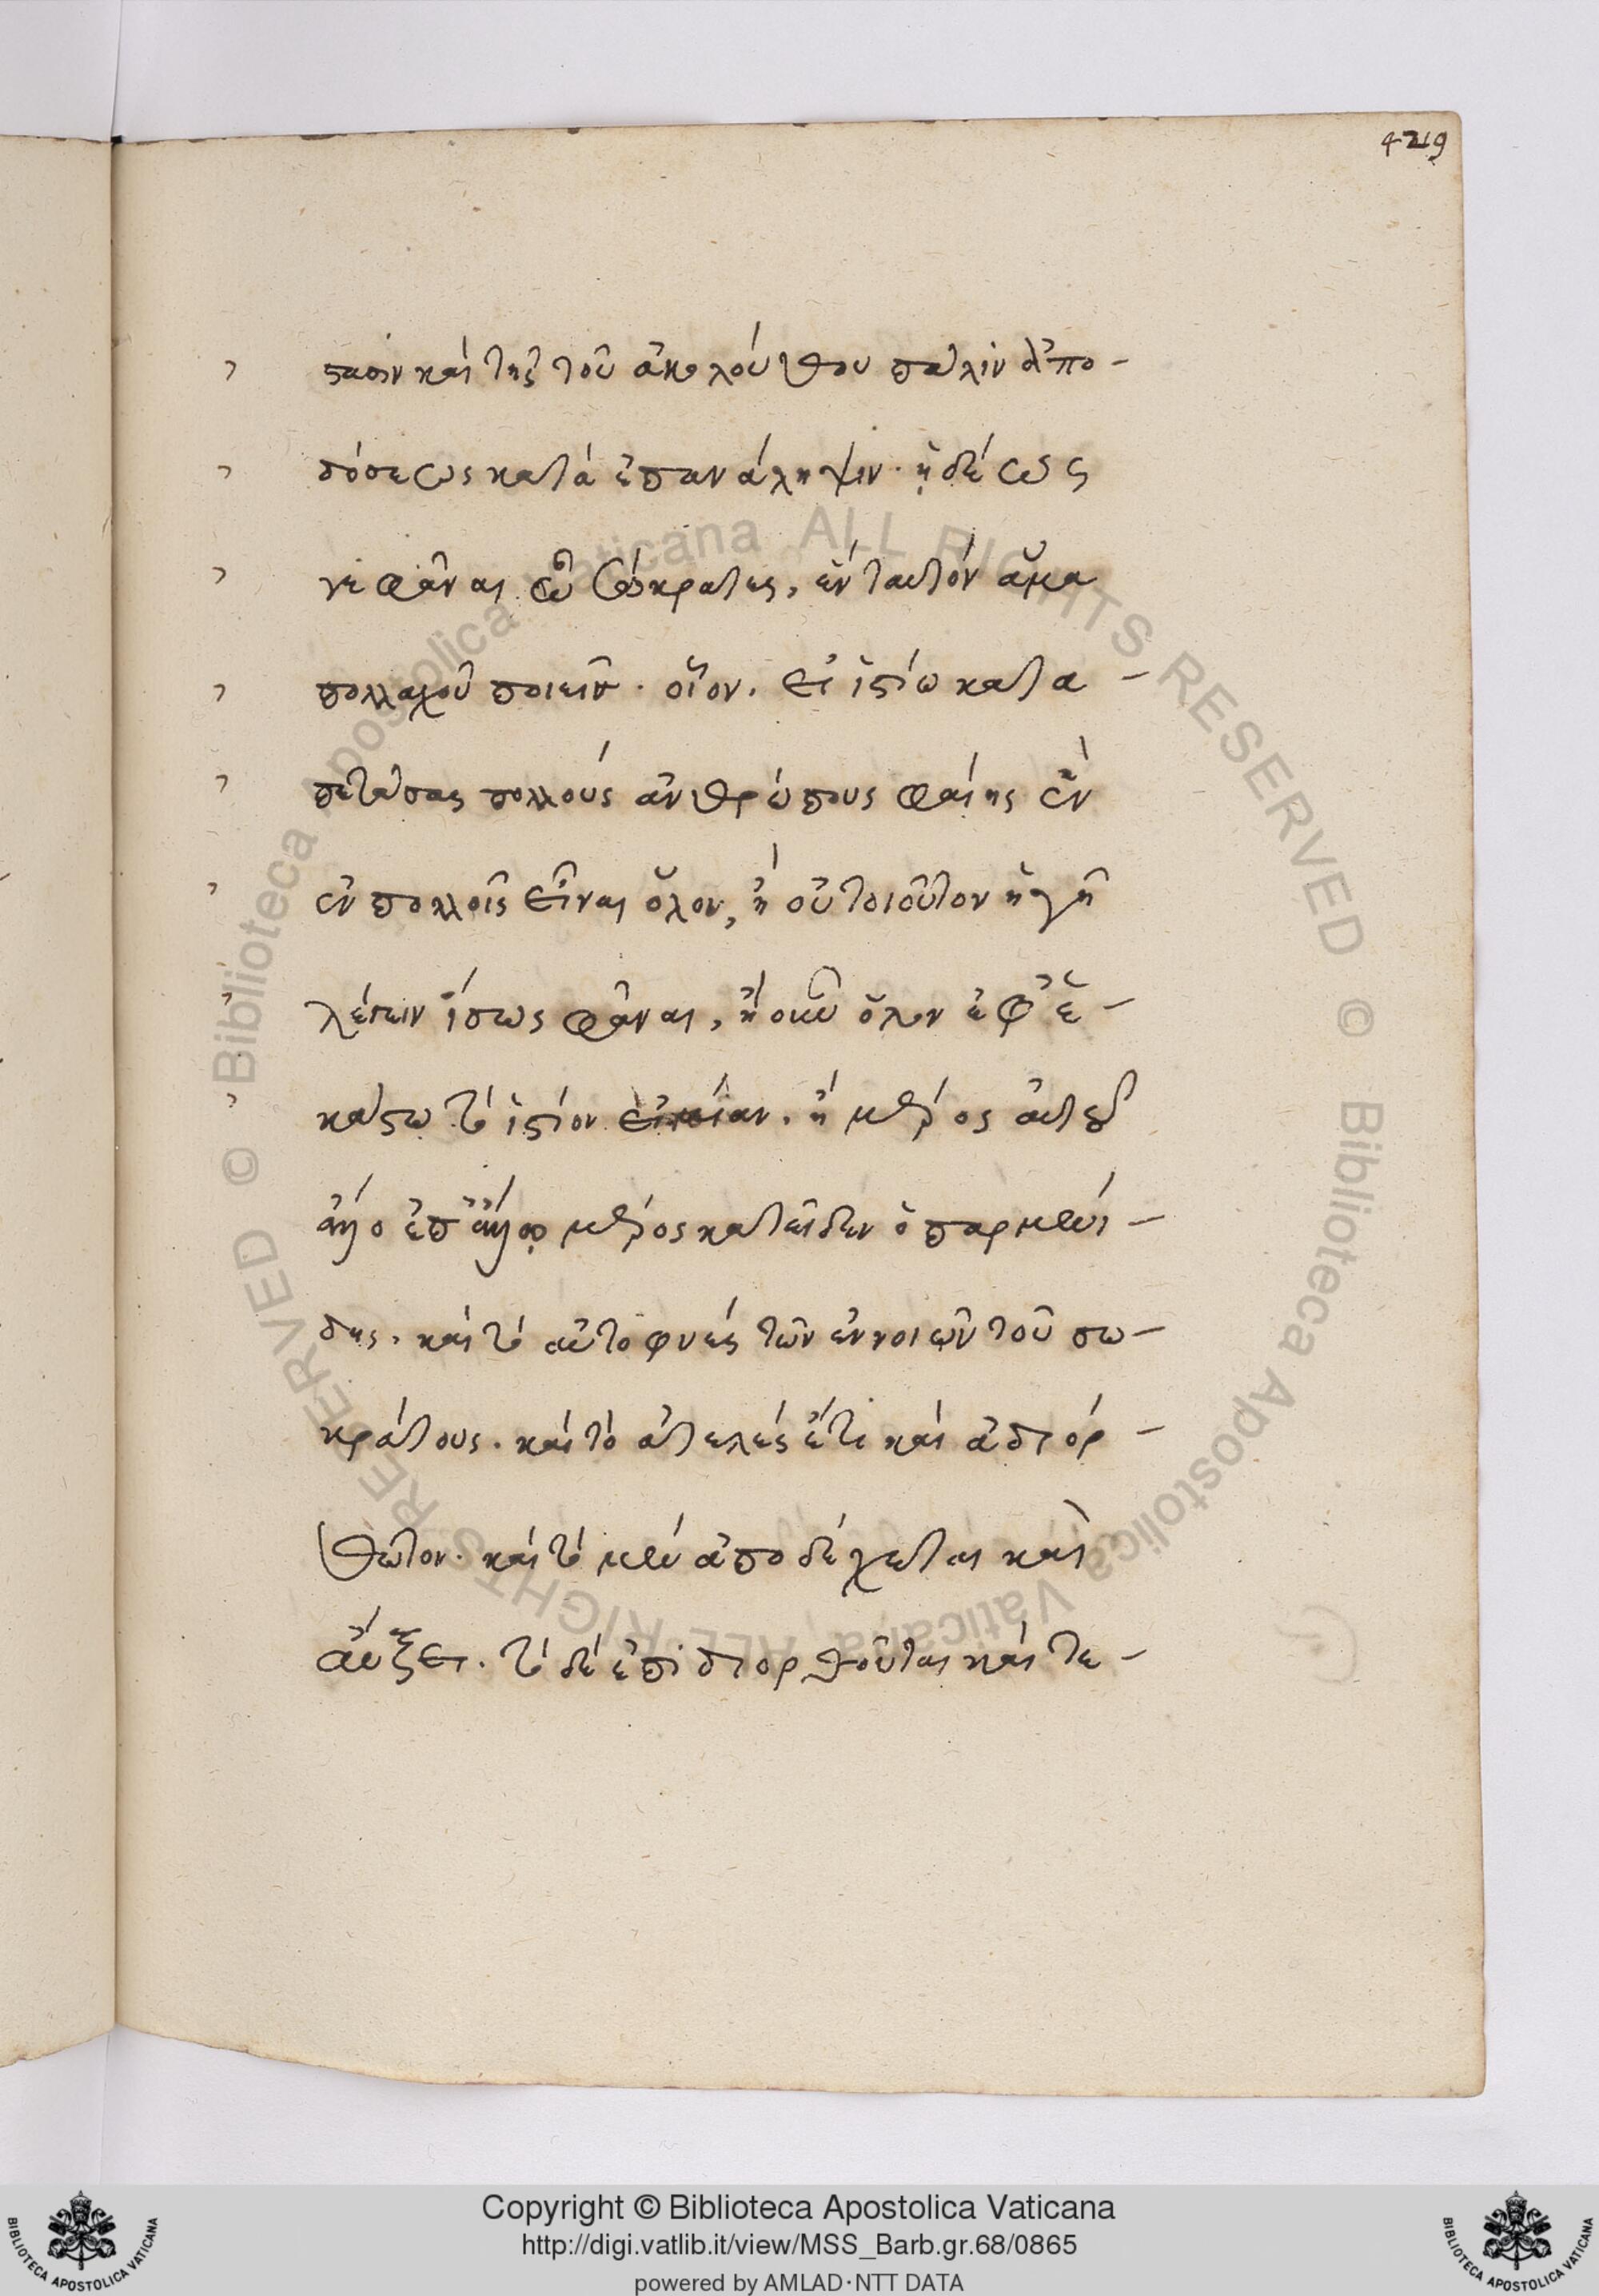 429
στασιν και της του ακολούθου πάλιν ἀπο-
δόσεως κατὰ ἐπανάληψιν. ἡδέως
γε φάναι ὦ σώκρατες, ἓν ταυτὸν ἅμα
πολλαχοῦ ποιεῖς. οἷον. εἰ ἱστίῳ κατα-
πετάσας πολλοὺς ἀνθρώπους φαίης ἓν
ἐν πολλοῖς εἶναι ὅλον, ἢ οὐ τοιοῦτον ἡγῇ
λέγειν ἴσως φᾶναι, ἢ οὖν ὅλον ἐφ' ἑ-
κάστῳ τὸ ἱστίον εἴη ἂν. ἢ μέρος αὐτοῦ
ἄλλο ἐπ' ἄλλῳ μέρος κατεῖδεν ὁ παρμενί-
δης. καὶ τὸ αὐτοφυὲς τῶν ἐννοιῶν τοῦ σω-
κράτους. καὶ τὸ ἀτελὲς ἔτι καὶ ἀδιόρ-
θωτον. καὶ τὸ μὲν ἀποδέχεται καὶ
αὔξει. τὸ δὲ ἐπιδιορθοῦται καὶ τε-
Copyright © Biblioteca Apostolica Vaticana
http://digi.vatlib.it/view/MSS_Barb.gr.68/0865
powered by AMLAD·NTT DATA